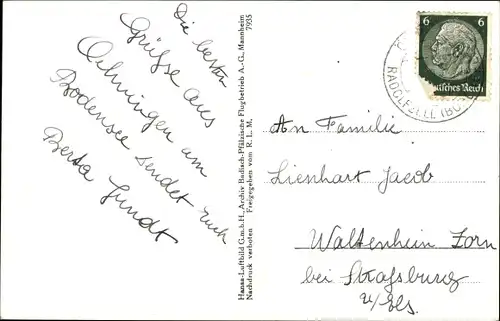 Die besten
Grüsse aus
Oehningen am
Bodensee sendet euch
Berta Jundt
Hansa-Luftbild G.m.b.H. Archiv Badisch-Pfälzische Flugbetrieb A.-G., Mannheim
Nachdruck verboten Freigegeben vom R.L.M. 7935
6 6
Deutsches Reich
RADOLFZELL (BO
An Familie
Lienhart Jacob
Waltenheim Zorn
bei Straßburg
u/Els.